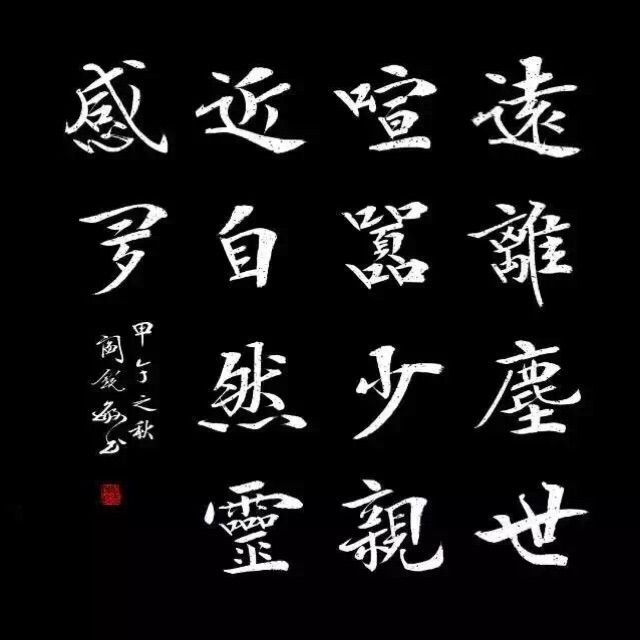 遠離塵世
喧囂少親
近自然靈
感多
甲午之秋
书